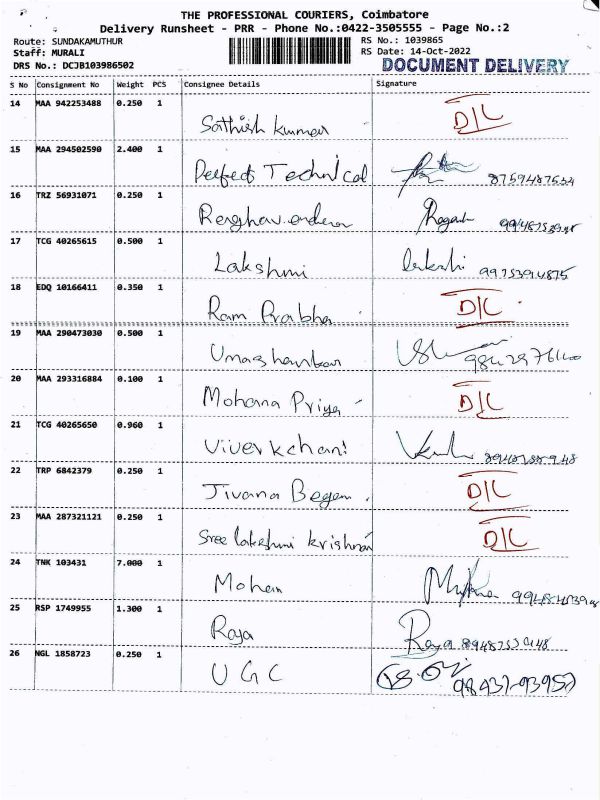 THE PROFESSIONAL COURIERS, Coimbatore
Delivery Runsheet - PRR - Phone No.:0422-3505555 - Page No.:2
Route: SUNDAKAMUTHUR RS No.: 1039865
Staff: MURALI RS Date: 14-Oct-2022
DRS No.: DCJB103986502 DOCUMENT DELIVERY
S No Consignment No Weight PCS Consignee Details Signature
14 MAA 942253488 0.250 1 Sathish kumar D/C
15 MAA 294502590 2.400 1 Perfect Technical 8759487534
16 TRZ 56931071 0.250 1
17 TCG 40265615 0.500 1 Lakshmi 9975394875
18 EDQ 10166411 0.350 1 Ram Prabha D/C
19 MAA 290473030 0.500 1 Umashankar
20 MAA 293316884 0.100 1 Mohana Priya D/C
21 TCG 40265650 0.960 1
22 TRP 6842379 0.250 1 Jivana Begam D/C
23 MAA 287321121 0.250 1 Sree lakshmi krishnan D/C
24 TNK 103431 7.000 1 Mohan
25 RSP 1749955 1.300 1 Raja Raja
26 NGL 1858723 0.250 1 UGC